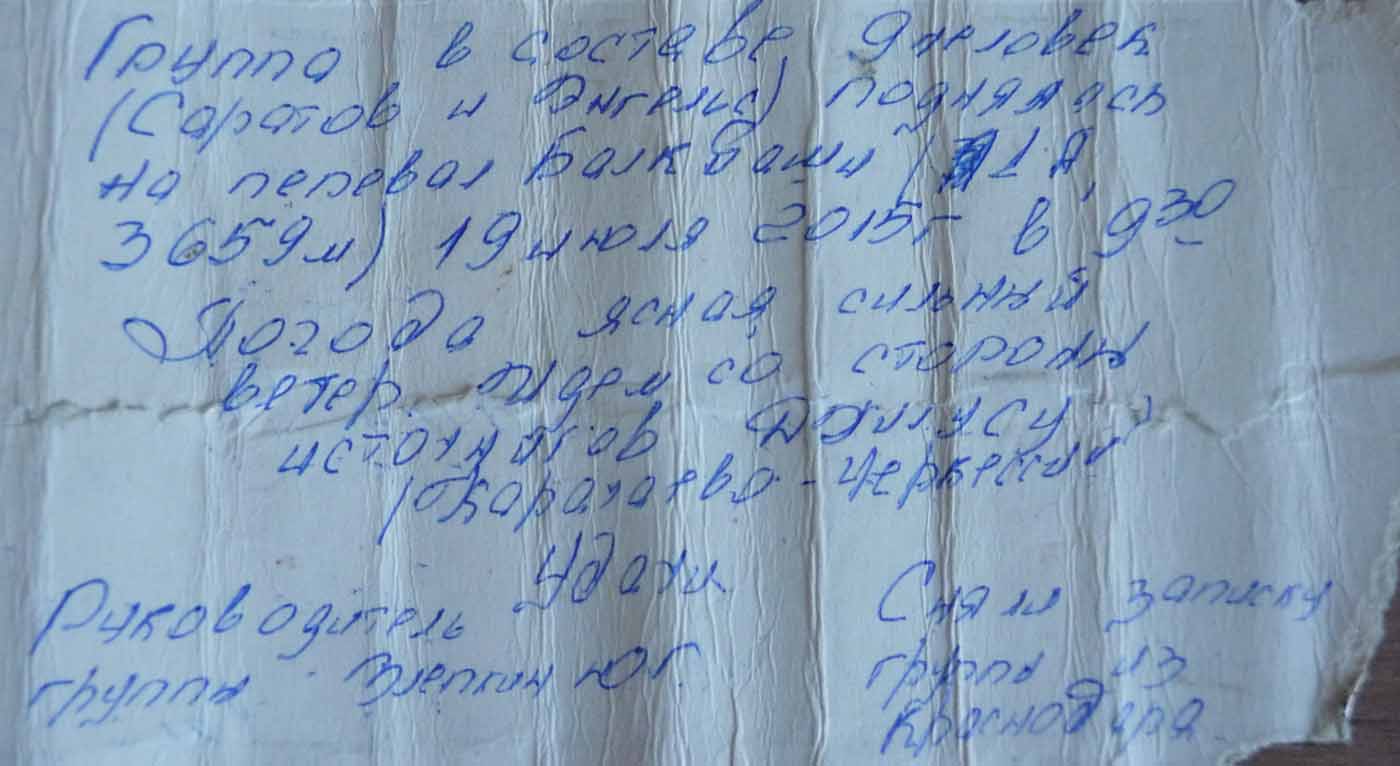 Группа в составе 9 человек
(Саратов и Энгельс) поднялась
на перевал Балк Баши (1А,
3659м) 19 июля 2015г в 9 30
Погода ясная сильный
ветер. Идем со стороны
источников Джилусу
(Карачаево-Черкессии)
Удачи
Руководитель
группы Злепкин ЮГ.
Сняли записку
группы из
Краснодара